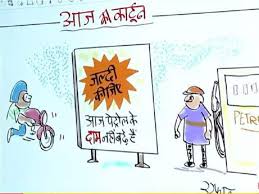 आज का कार्टून
जल्दी
कीजिए
आज पेट्रोल के
दाम नहीं बढ़े हैं
PETR